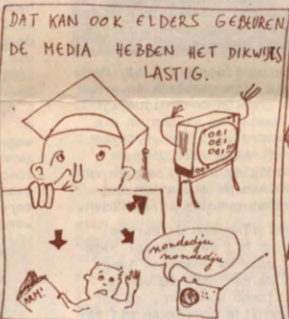 DAT KAN OOK ELDERS GEBEUREN
DE MEDIA HEBBEN HET DIKWIJLS
LASTIG.
OEI
OEI
OEI!!
nondedju
nondedju